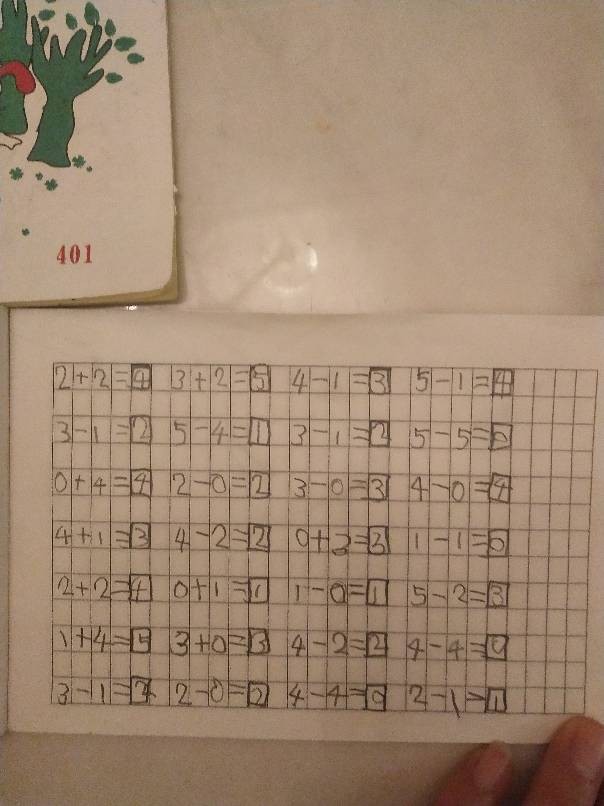 401
2+2=4 3+2=5 4-1=3 5-1=4
3-1=2 5-4=1 3-1=2 5-5=0
0+4=4 2-0=2 3-0=3 4-0=4
4+1=3 4-2=2 0+3=3 1-1=0
2+2=4 0+1=1 1-0=1 5-2=3
1+4=5 3+0=3 4-2=2 4-4=0
3-1=2 2-0=2 4-4=0 2-1=1